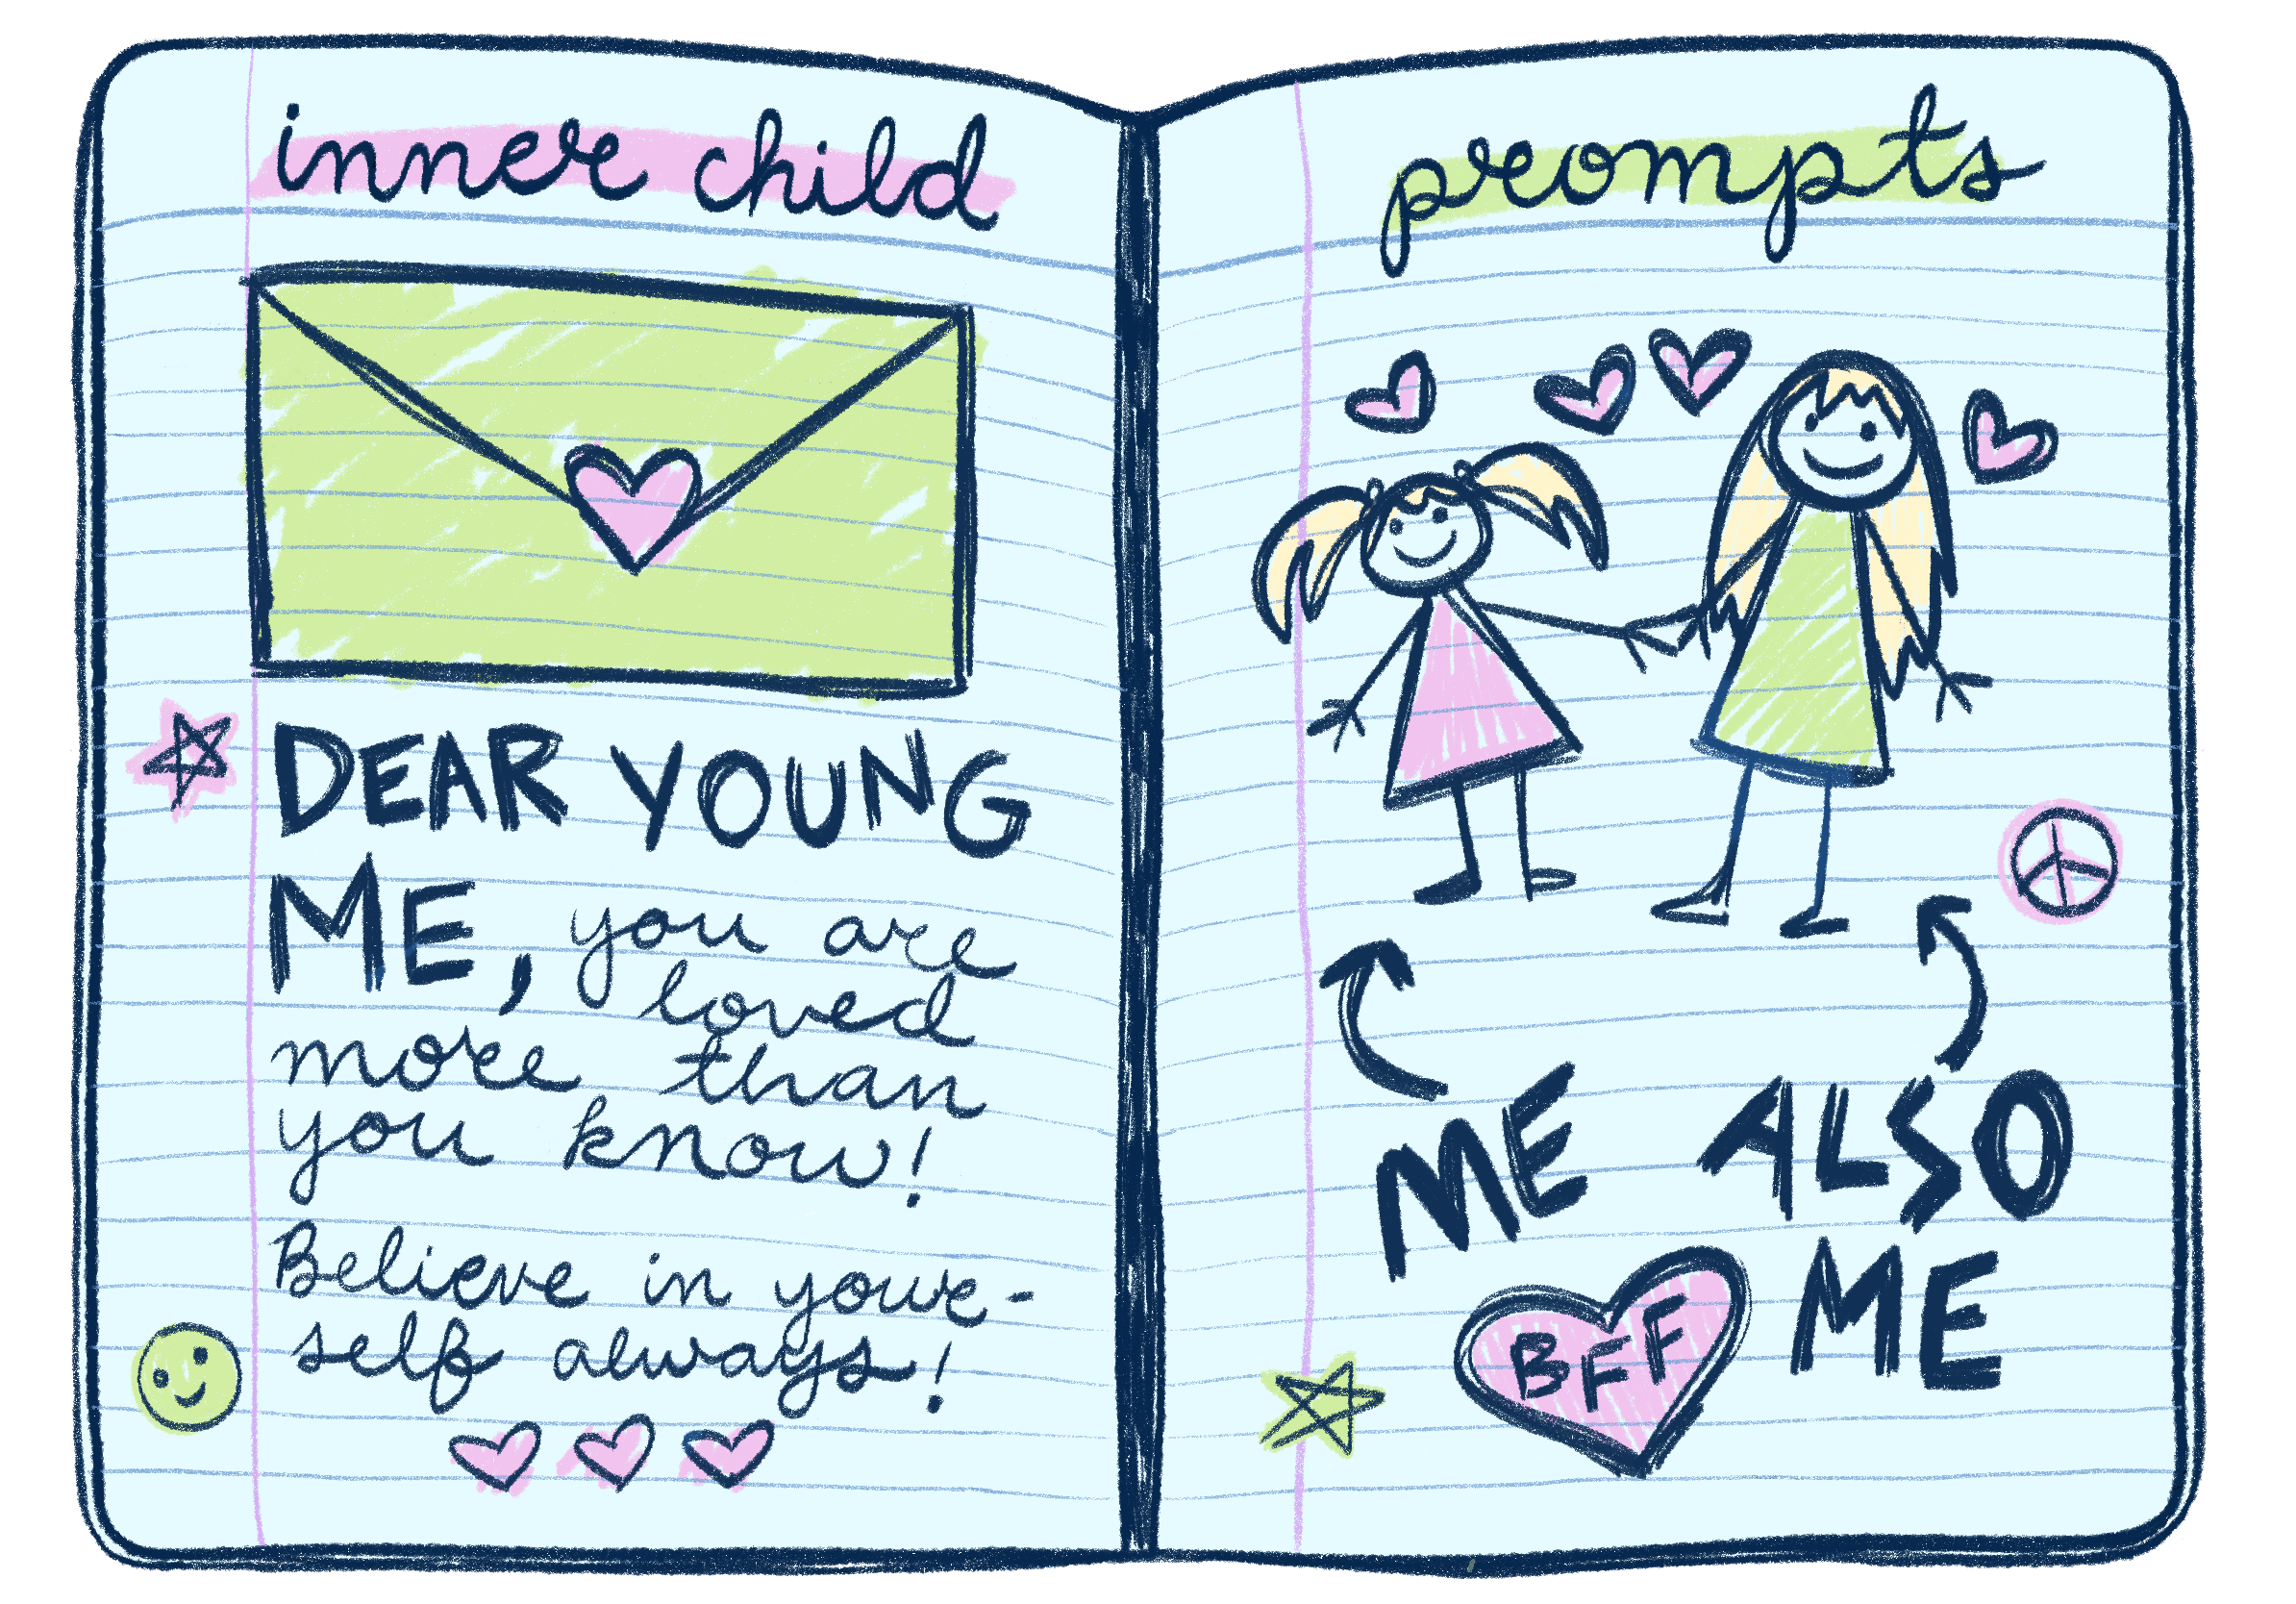 inner child
DEAR YOUNG
ME, you are
loved
more than
you know!
Believe in your-
self always!
prompts
ME
ALSO
ME
BFF